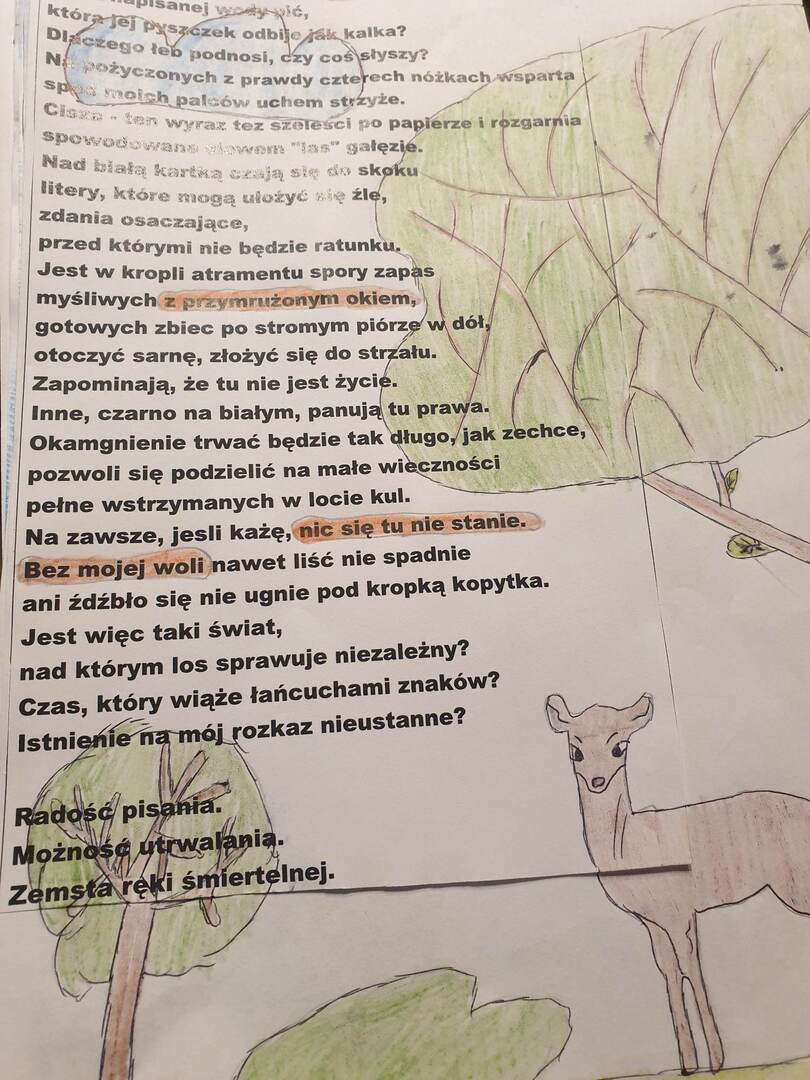 napisanej wody pić,
która jej pyszczek odbije jak kalka?
Dlaczego łeb podnosi, czy coś słyszy?
Na pożyczonych z prawdy czterech nóżkach wsparta
spod moich palców uchem strzyże.
Cisza - ten wyraz tez szeleści po papierze i rozgarnia
spowodowane słowem "las" gałęzie.
Nad białą kartką czają się do skoku
litery, które mogą ułożyć się źle,
zdania osaczające,
przed którymi nie będzie ratunku.
Jest w kropli atramentu spory zapas
myśliwych z przymrużonym okiem,
gotowych zbiec po stromym piórze w dół,
otoczyć sarnę, złożyć się do strzału.
Zapominają, że tu nie jest życie.
Inne, czarno na białym, panują tu prawa.
Okamgnienie trwać będzie tak długo, jak zechce,
pozwoli się podzielić na małe wieczności
pełne wstrzymanych w locie kul.
Na zawsze, jesli każę, nic się tu nie stanie.
Bez mojej woli nawet liść nie spadnie
ani źdźbło się nie ugnie pod kropką kopytka.
Jest więc taki świat,
nad którym los sprawuje niezależny?
Czas, który wiąże łańcuchami znaków?
Istnienie na mój rozkaz nieustanne?
Radość pisania.
Możność utrwalania.
Zemsta ręki śmiertelnej.